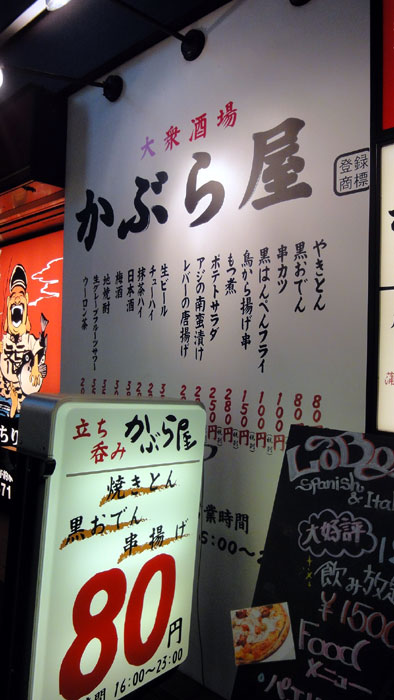 大衆酒場
かぶら屋
登録
商標
やきとん
黒おでん
串カツ
黒はんぺんフライ
鳥から揚げ串
もつ煮
ポテトサラダ
アジの南蛮漬け
レバーの唐揚げ
生ビール
チューハイ
抹茶ハイ
日本酒
梅酒
地焼酎
生グレープフルーツサワー
ウーロン茶
80円
80円
100円
100円
150円
280円
250円
業時間
立ち
呑み
かぶら屋
焼きとん
黒おでん
串揚げ
80円
時間 16:00～23:00
Spanish
& Ita
大好評
飲み放題
¥1500
Food
メニュー
71